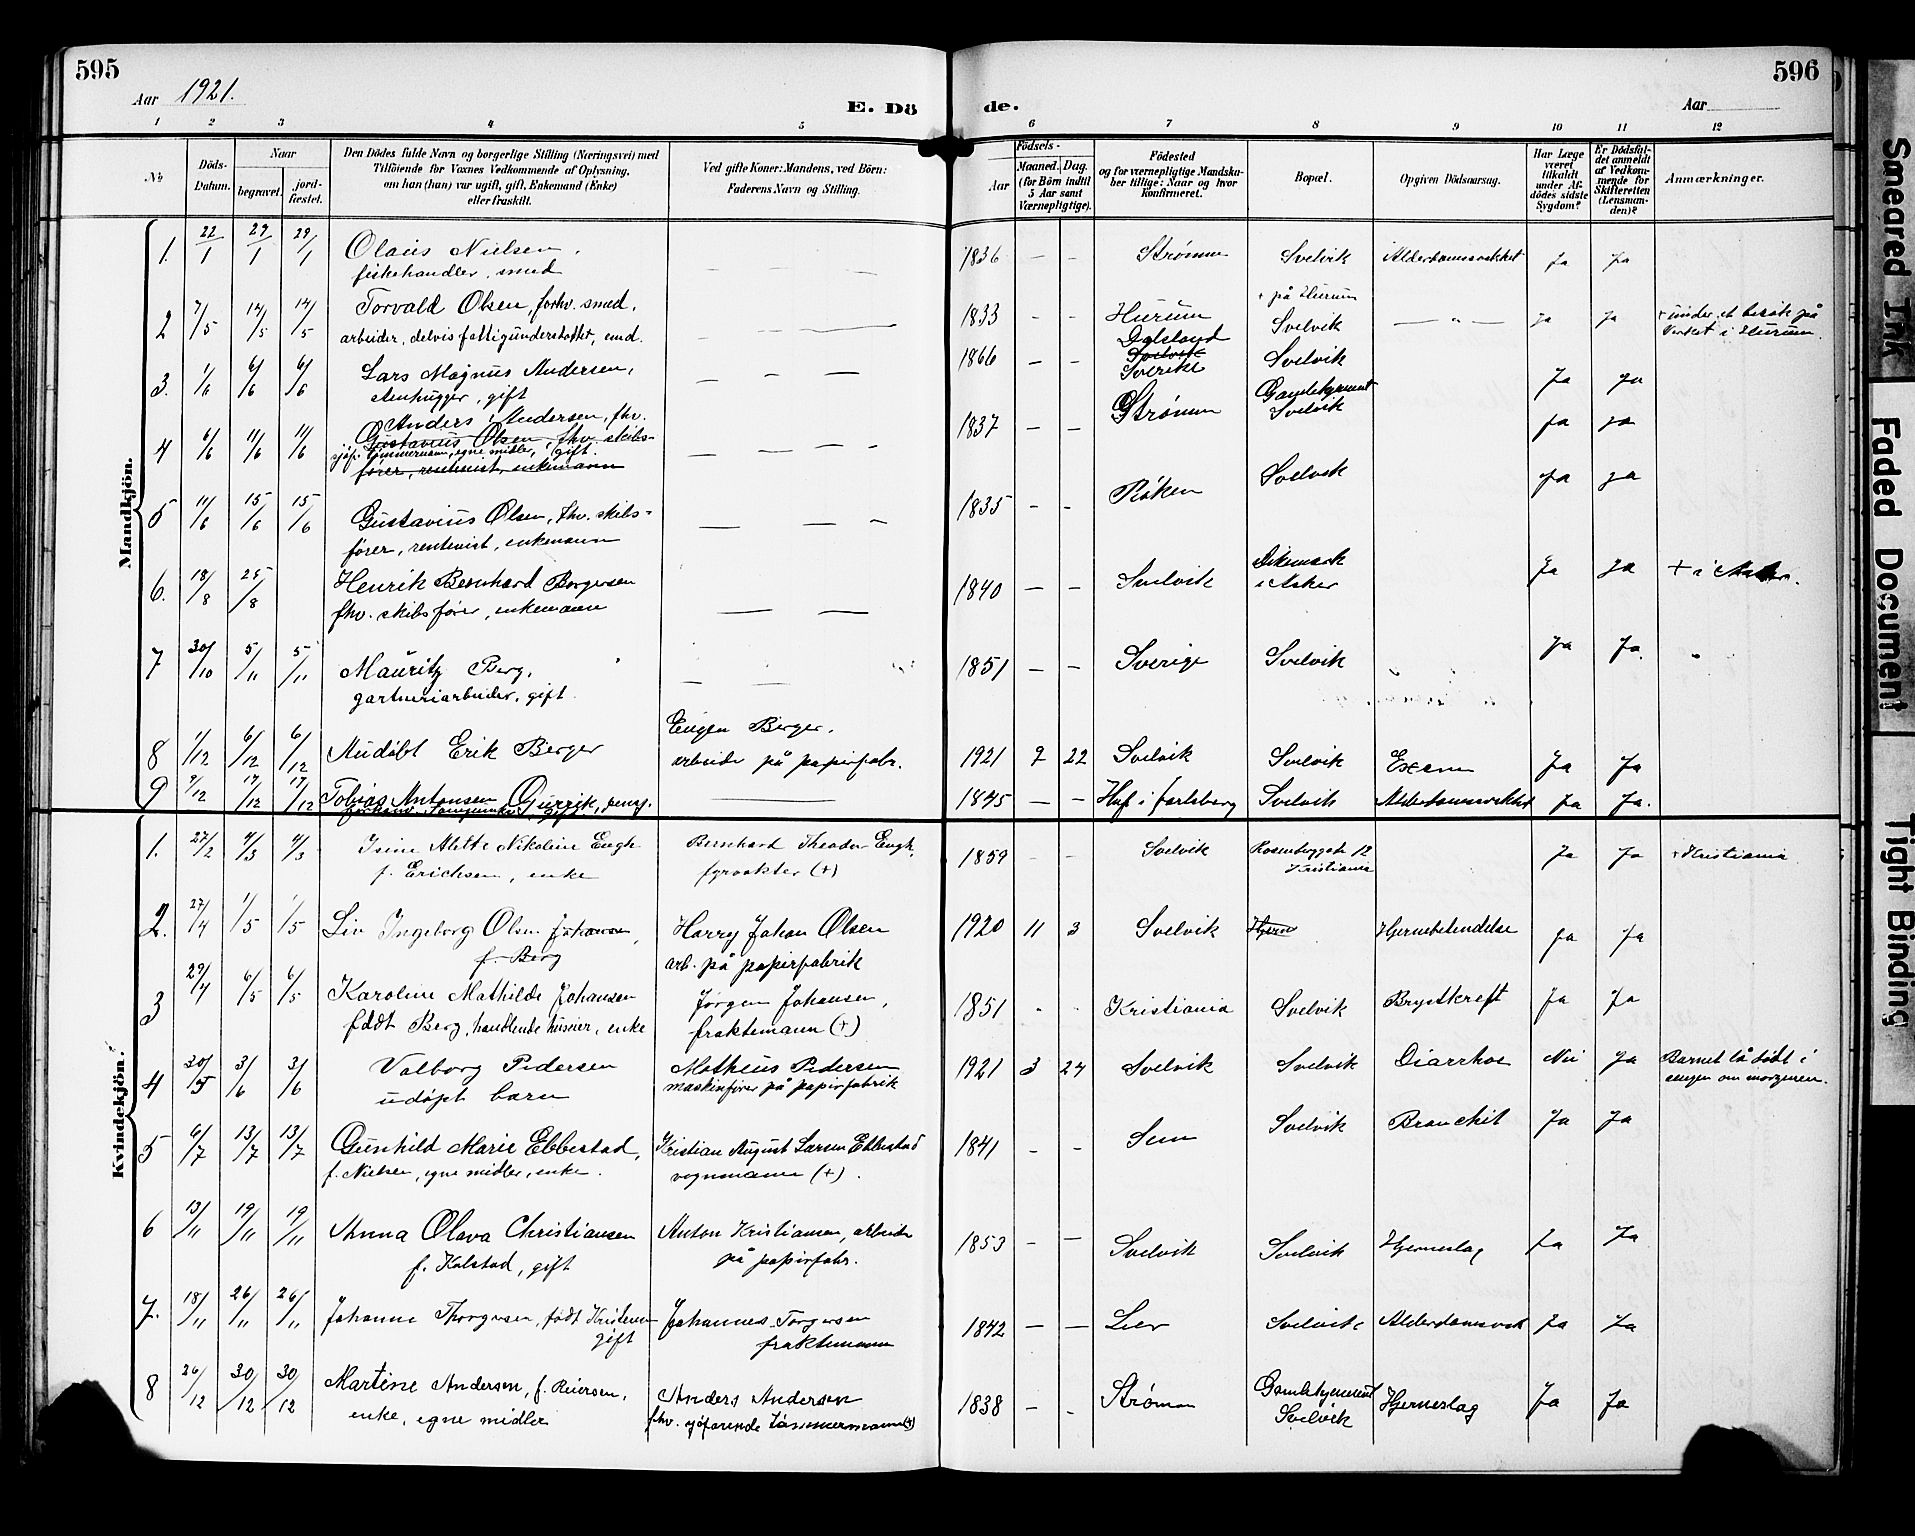 595
Aar 1921.
E. Dö
de.
Aar
596
1 2 3 4 5 6 7 8 9 10 11 12
№
Döds-
Datum.
Naar
begravet.
jord-
fæstet.
Den Dödes fulde Navn og borgerlige Stilling (Næringsvei) med
Tilföiende for Voxnes Vedkommende af Oplysning,
om han (hun) var ugift, gift, Enkemand (Enke)
eller fraskilt.
Ved gifte Koner: Mandens, ved Börn:
Faderens Navn og Stilling.
Födsels-
Aar
Maaned. Dag.
(for Börn indtil
5 Aar samt
Værnepligtige).
Födested
og for værnepligtige Mandska-
ber tillige: Naar og hvor
konfirmeret.
Bopæl.
Opgiven Dödsaarsag.
Har Læge
været
tilkaldt
under Af-
dödes sidste
Sygdom?
Er Dödsfal-
det anmeldt
af Vedkom-
mende for
Skifteretten
(Lensman-
den)?
Anmærkninger.
Mandkjön.
1. 22/1 29/1 29/1 Olaus Nielsen, 1836 — — Strømm Svelvik Alderdomssvakhet Ja Ja
fiskehandler, smed
2 7/5 14/5 14/5 Torvald Olsen, forhv. smed, 1833 — — Hurum + på Hurum Svelvik — " — Ja Ja + under et besøk på
arbeider, delvis fattigunderstøttet, Verket i Hurum.
3. 1/6 6/6 6/6 Lars Magnus Andersen, 1866 — — Dalsland Svelvik Sverike Svelvik Ja Ja
stenhugger, gift
4 6/6 11/6 11/6 Anders Andersen, fhv. 1837 — — Strømm Gamlehjemmet Svelvik Ja Ja
Gustavius Olsen, fhv. skibs-
sjøf. tømmermann, egne midler, gift.
fører, rentenist, enkemann
5 11/6 15/6 15/6 Gustavius Olsen, fhv. skibs- 1835 — — Røken Svelvik Ja Ja
fører, rentenist, enkemann
6. 18/8 25/8 Henrik Bernhard Borgersen 1840 — — Svelvik Dikemark i Asker Ja Ja + i Asker.
fhv. skibsfører, enkemann
7 30/10 5/11 5/11 Mauritz Berg, 1851 — — Sverige Svelvik Ja Ja
gartneriarbeider, gift.
8 1/12 6/12 6/12 Audøbt Erik Berger Eugen Berger, 1921 9 22 Svelvik Svelvik Exem Ja Ja
arbeider på papirfabr.
9 9/12 17/12 17/12 Tobias Antonsen 1845 — — Hof i Jarlsberg Svelvik Alderdomssvakhet Ja Ja.
Kvindekjön.
1. 27/2 4/3 4/3 Isine Alette Nikoline Engh Bernhard Theodor Engh, 1859 - - Svelvik 12 Kristiania Ja Ja + Kristiania
f. Erichsen, enke fyrvokter (+)
2. 27/4 1/5 1/5 Liv Ingeborg Olsen Johansen, Harry Johan Olsen 1920 11 3 Svelvik Hjern Hjernebetendelse Ja Ja
f. Berg arb. på papirfabrik
3 29/4 6/5 6/5 Karoline Mathilde Johansen Jørgen Johansen, 1851 - - Kristiania Svelvik Brystkreft Ja Ja
født Berg, handlende huseier, enke fraktemann (+)
4 30/5 3/6 3/6 Valborg Pedersen Matheus Pedersen 1921 3 24 Svelvik Svelvik Diarrhoe Nei Ja Barnet lå dødt i
udøpt barn maskinfører på papirfabrik sengen om morgenen.
5 6/7 13/7 13/7 Gunhild Marie Ebbestad, Kristian August Larsen Ebbestad 1841 - - Sem Svelvik Bronchit Ja Ja
f. Nielsen, egne midler, enke. vognmann (+).
6 13/11 19/11 19/11 Anna Olava Christiansen Anton Kristiansen, arbeider 1853 - — Svelvik Svelvik Hjerneslag Ja Ja
f. Kolstad, gift på papirfabr.
7. 18/11 26/11 26/11 Johanne Thorgersen, født Kristensen Johannes Torgersen 1842 — — Lier Svelvik Alderdomssvak Ja Ja
gift fraktemann
8 26/12 30/12 30/12 Martine Andersen, f. Reiersen, Anders Andersen 1838 - - Strømm Gamlehjemmet Svelvik Hjerneslag Ja Ja
enke, egne midler fhv. sjøfarende tømmermann (+)
Smeared Ink
Faded Document
Tight Binding